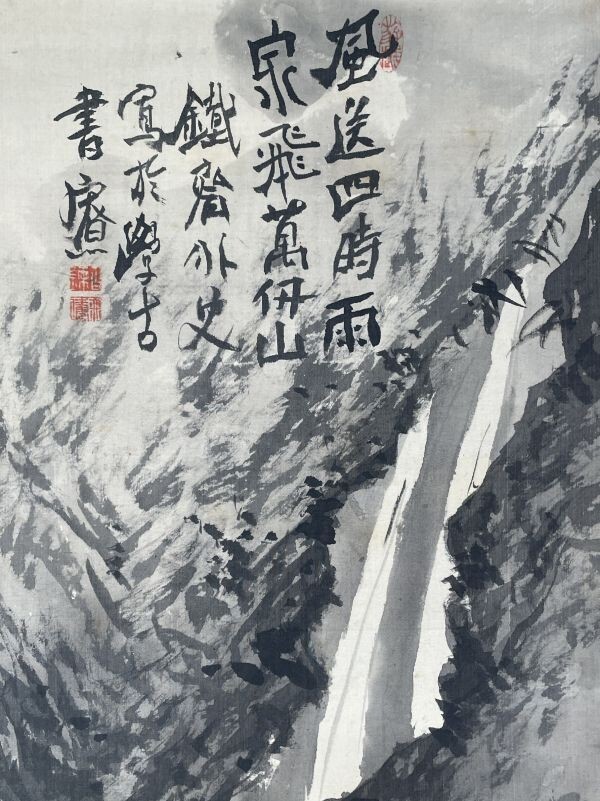 風送四時雨
泉飛萬仞山
鐵外史
寫於學古
書廬